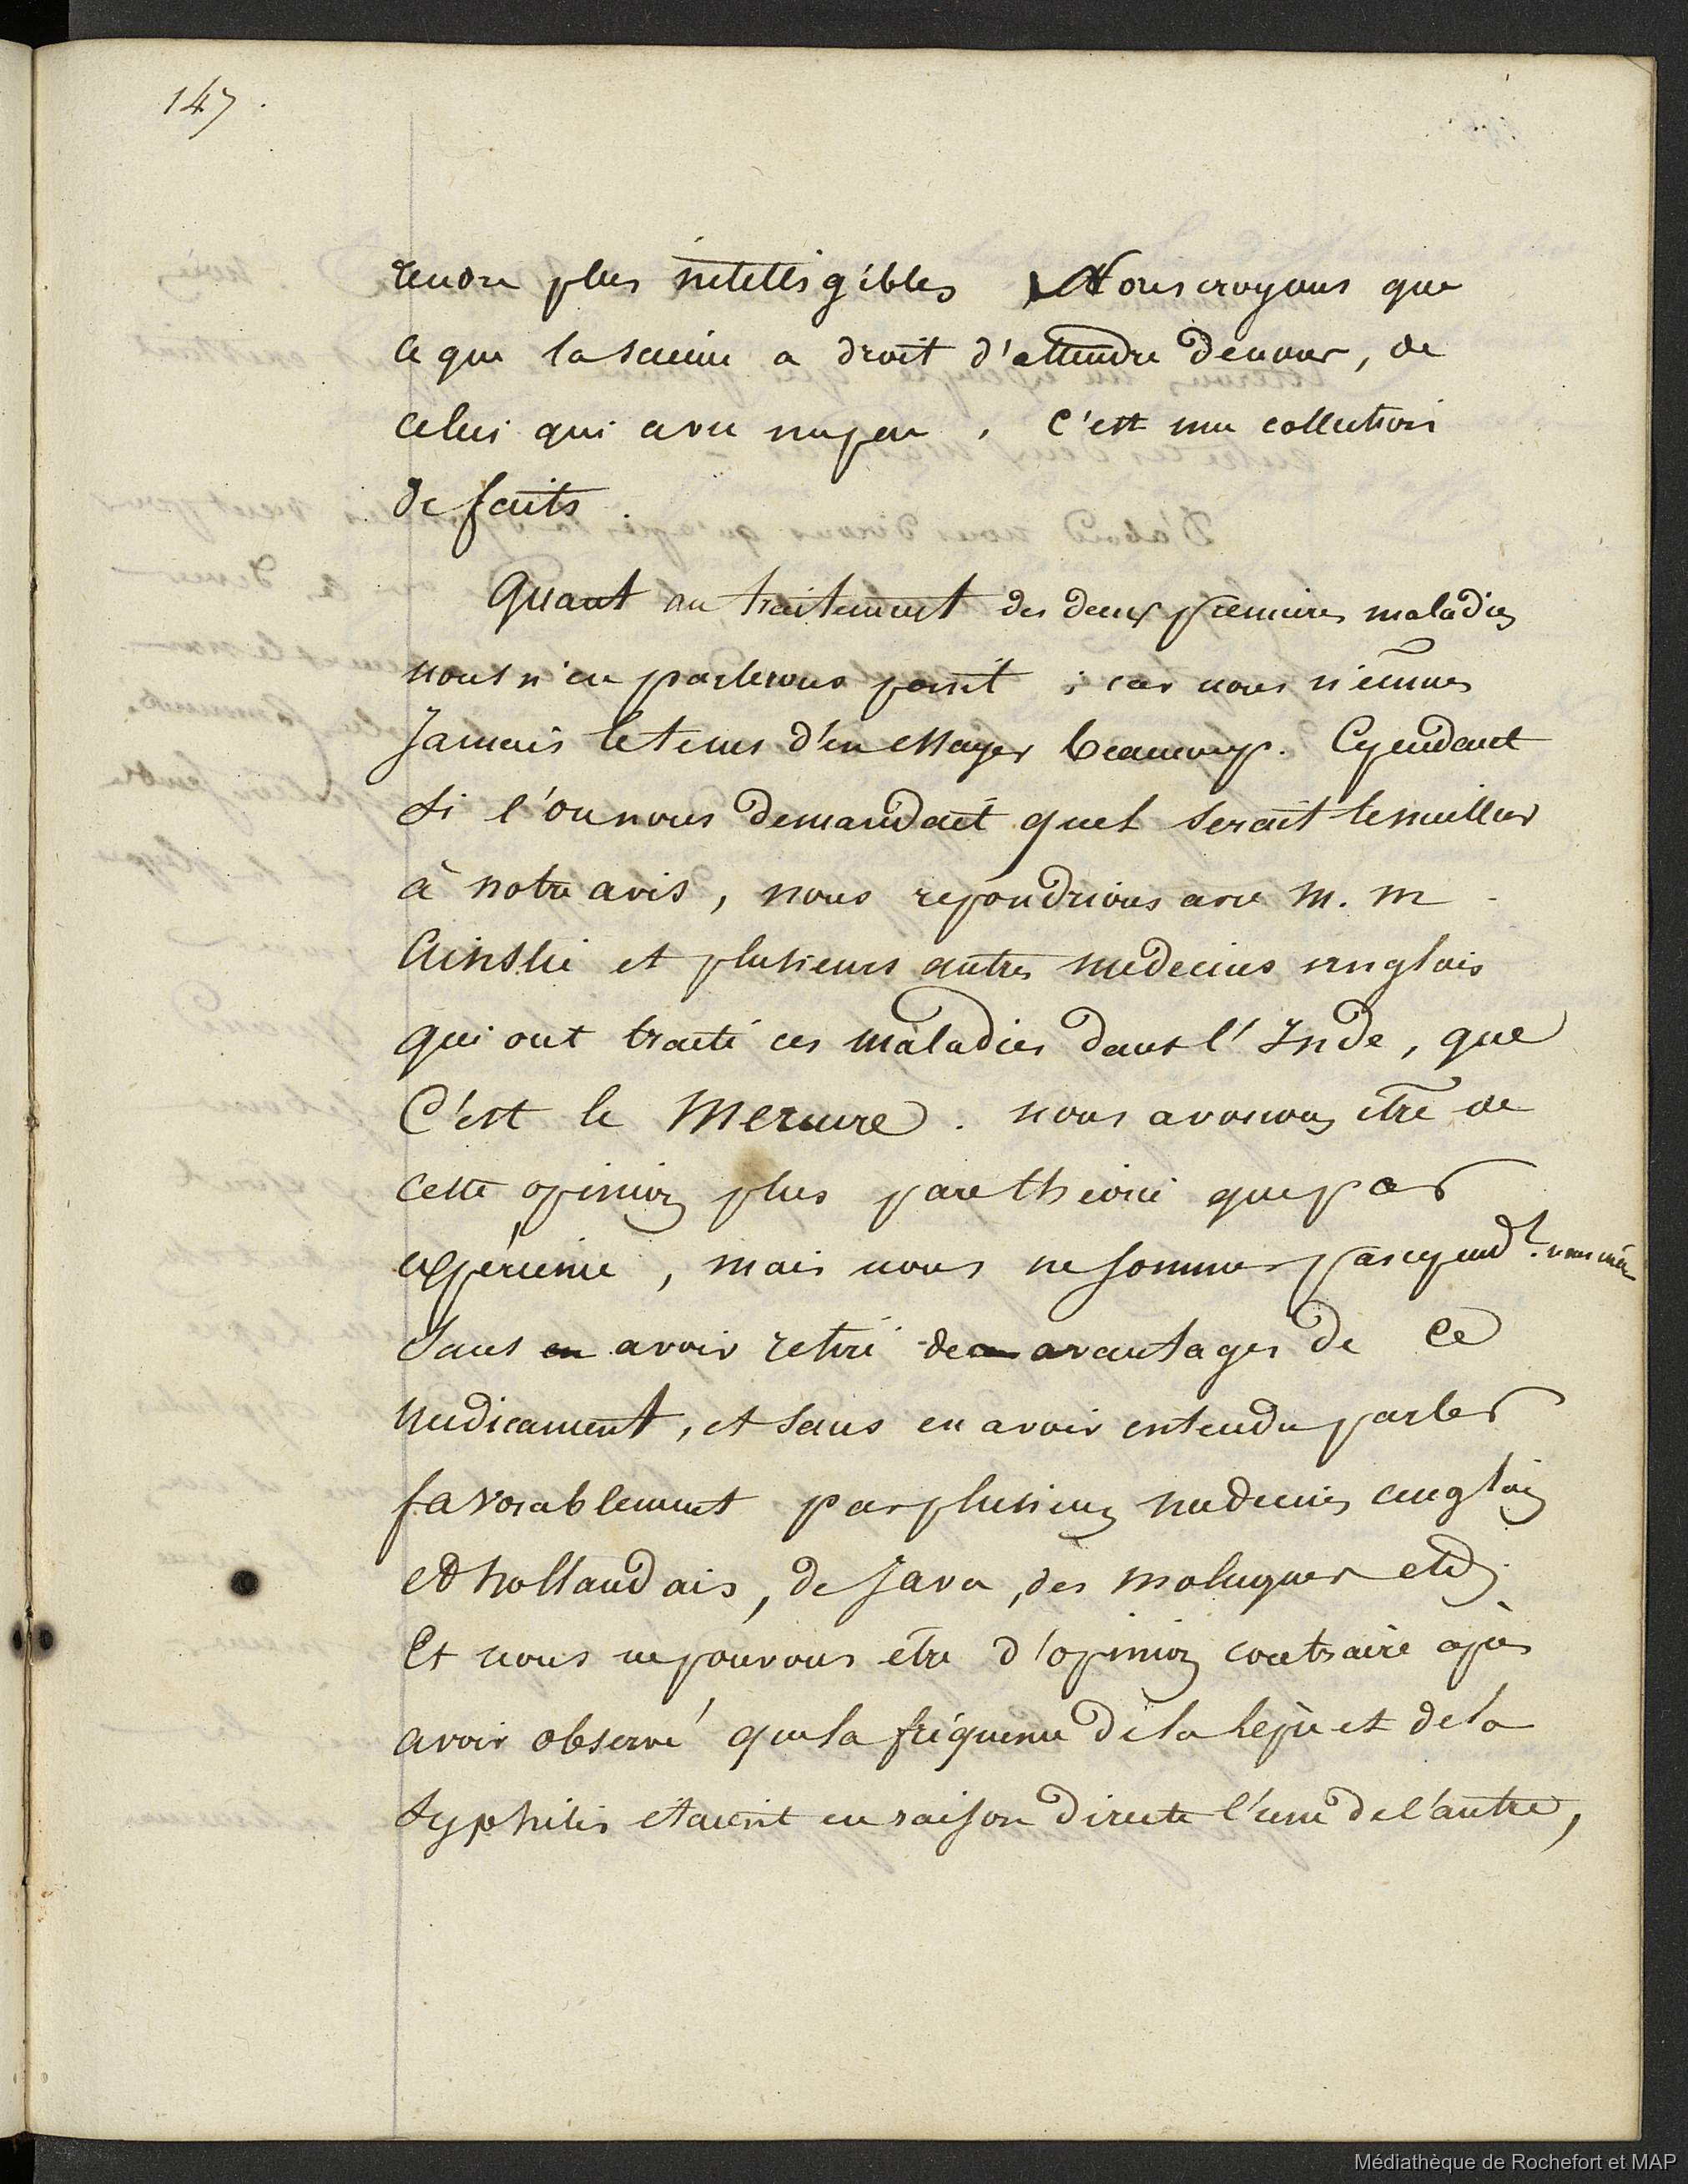 147.
rendre plus intelligibles Nous croyons que
ce que la science a droit d'attendre de nous, de
celui qui a vu un peu, c'est une collection
de faits.
Quant au traitement des deux premieres maladies
nous n'en parlerons point ; car nous n'eûmes
Jamais le tems d'en essayer beaucoup. Cependant
Si l'on nous demandait quel serait le meilleur
à notre avis, nous repondrions avec M. M
Ainslie et plusieurs autres medecins anglais
qui ont traité ces maladies dans l'Inde, que
C'est le Mercure. nous avouons être de
cette opinion plus par théorie que par
expérience, mais nous ne sommes pas cepend.t nous même
Sans en avoir retiré des avantages de ce
medicament, et sans en avoir entendu parler
favorablement par plusieurs medecins anglais
et hollandais, de Java, des moluques etc.
Et nous ne pouvons etre d'opinion contraire après
avoir observé que la fréquence de la lèpre et de la
Syphilis etaient en raison directe l'une de l'autre,
Médiathèque de Rochefort et MAP